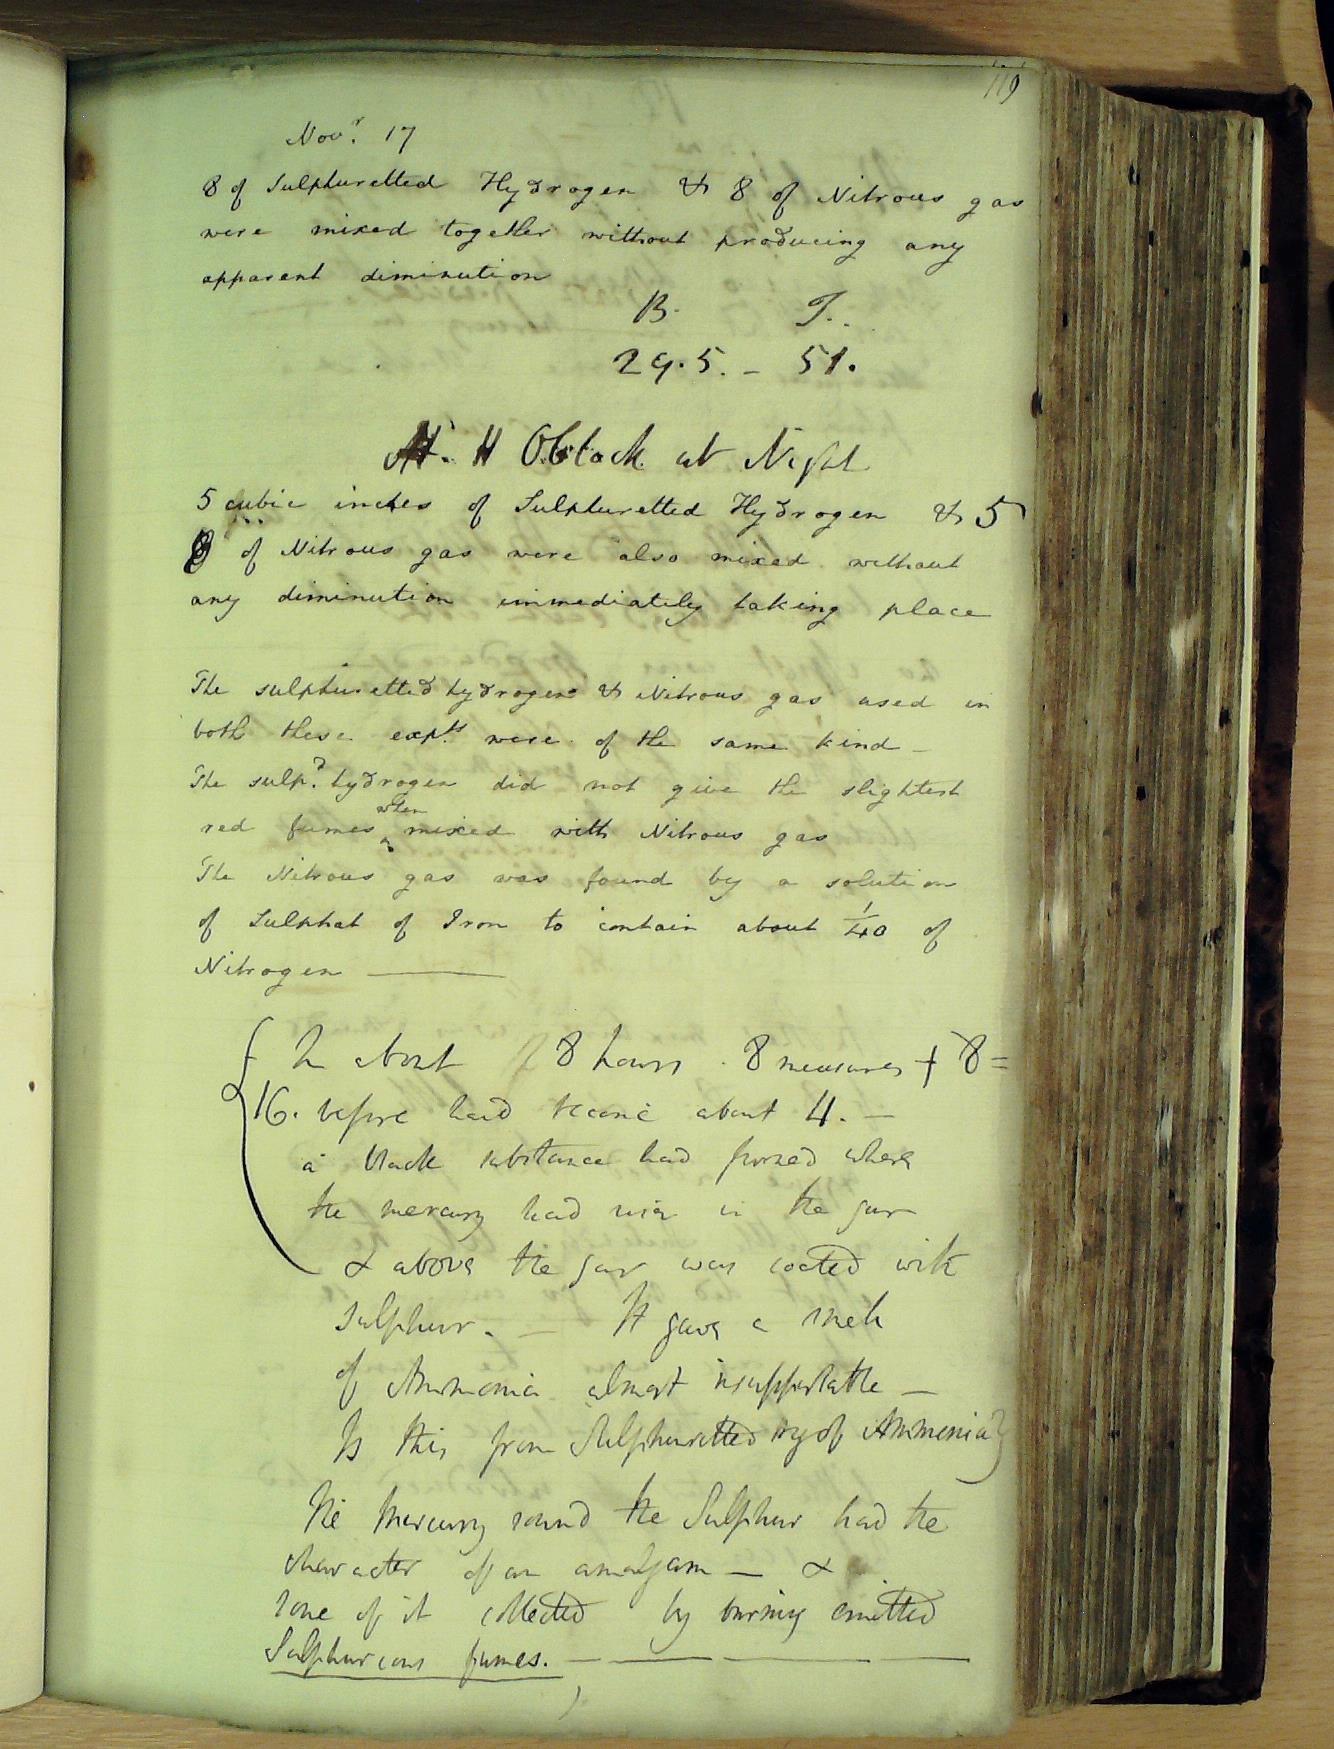 119
Novr. 17
8 of Sulphuretted Hydrogen & 8 of Nitrous gas
were mixed together without producing any
apparent diminution
B. T.
29.5. - 51.
At. 11 OClock at Night
5 cubic inches of Sulphuretted Hydrogen & 5
of Nitrous gas were also mixed without
any diminution immediately taking place
The sulphuretted hydrogen & Nitrous gas used in
both these expts were of the same kind -
The sulpd. hydrogen did not give the slightest
red fumes when mixed with Nitrous gas
The Nitrous gas was found by a solution
of Sulphat of Iron to contain about 1/40 of
Nitrogen ———
In about 8 hours. 8 measures + 8 =
16. before had become about 4. -
a black substance had formed where
the mercury had risen in the jar
& above the jar was coated with
Sulphur. - It gave a smell
of Ammonia almost insupportable -
Is this from Sulphuretted hyd of Ammonia?
The Mercury round the Sulphur had the
character of an amalgam - &
some of it collected by burning emitted
Sulphureous fumes. - ——— ——— ———